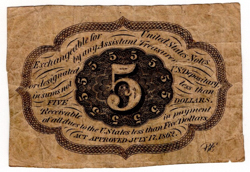 Exchangeable for United States Notes
by any Assistant Treasurer or designated
U.S. Depositary in sums not less than
FIVE DOLLARS.
Receivable in payment
of all dues to the U. States less than Five Dollars.
ACT APPROVED JULY 17, 1862.
5